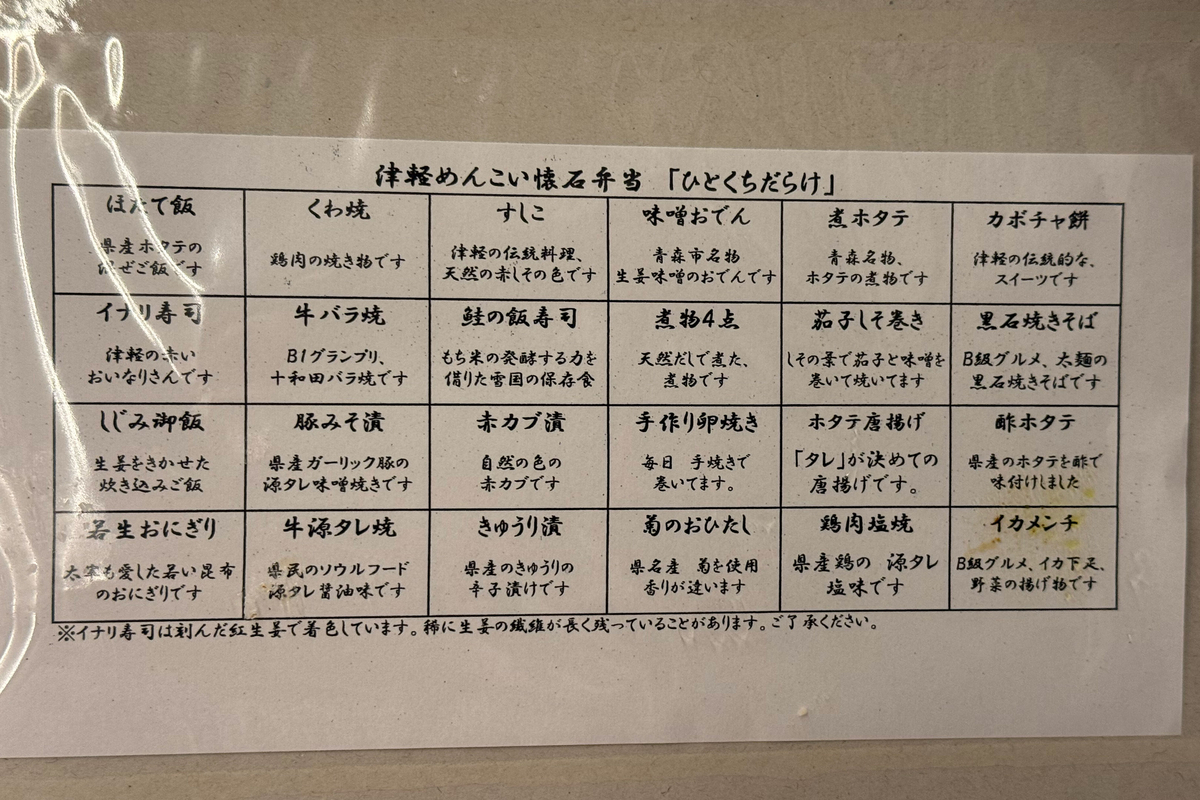 津軽めんこい懐石弁当 「ひとくちだらけ」
ほたて飯
県産ホタテの
混ぜご飯です
くわ焼
鶏肉の焼き物です
すしこ
津軽の伝統料理、
天然の赤しその色です
味噌おでん
青森市名物
生姜味噌のおでんです
煮ホタテ
青森名物、
ホタテの煮物です
カボチャ餅
津軽の伝統的な、
スイーツです
イナリ寿司
津軽の赤い
おいなりさんです
牛バラ焼
B1グランプリ、
十和田バラ焼です
鮭の飯寿司
もち米の発酵する力を
借りた雪国の保存食
煮物4点
天然だしで煮た、
煮物です
茄子しそ巻き
しその葉で茄子と味噌を
巻いて焼いてます
黒石焼きそば
B級グルメ、太麺の
黒石焼きそばです
しじみ御飯
生姜をきかせた
炊き込みご飯
豚みそ漬
県産ガーリック豚の
源タレ味噌焼きです
赤カブ漬
自然の色の
赤カブです
手作り卵焼き
毎日 手焼きで
巻いてます。
ホタテ唐揚げ
「タレ」が決めての
唐揚げです。
酢ホタテ
県産のホタテを酢で
味付けしました
若生おにぎり
太宰も愛した若い昆布
のおにぎりです
牛源タレ焼
県民のソウルフード
源タレ醤油味です
きゅうり漬
県産のきゅうりの
辛子漬けです
菊のおひたし
県名産 菊を使用
香りが違います
鶏肉塩焼
県産鶏の 源タレ
塩味です
イカメンチ
B級グルメ、イカ下足、
野菜の揚げ物です
※イナリ寿司は刻んだ紅生姜で着色しています。稀に生姜の繊維が長く残っていることがあります。ご了承ください。